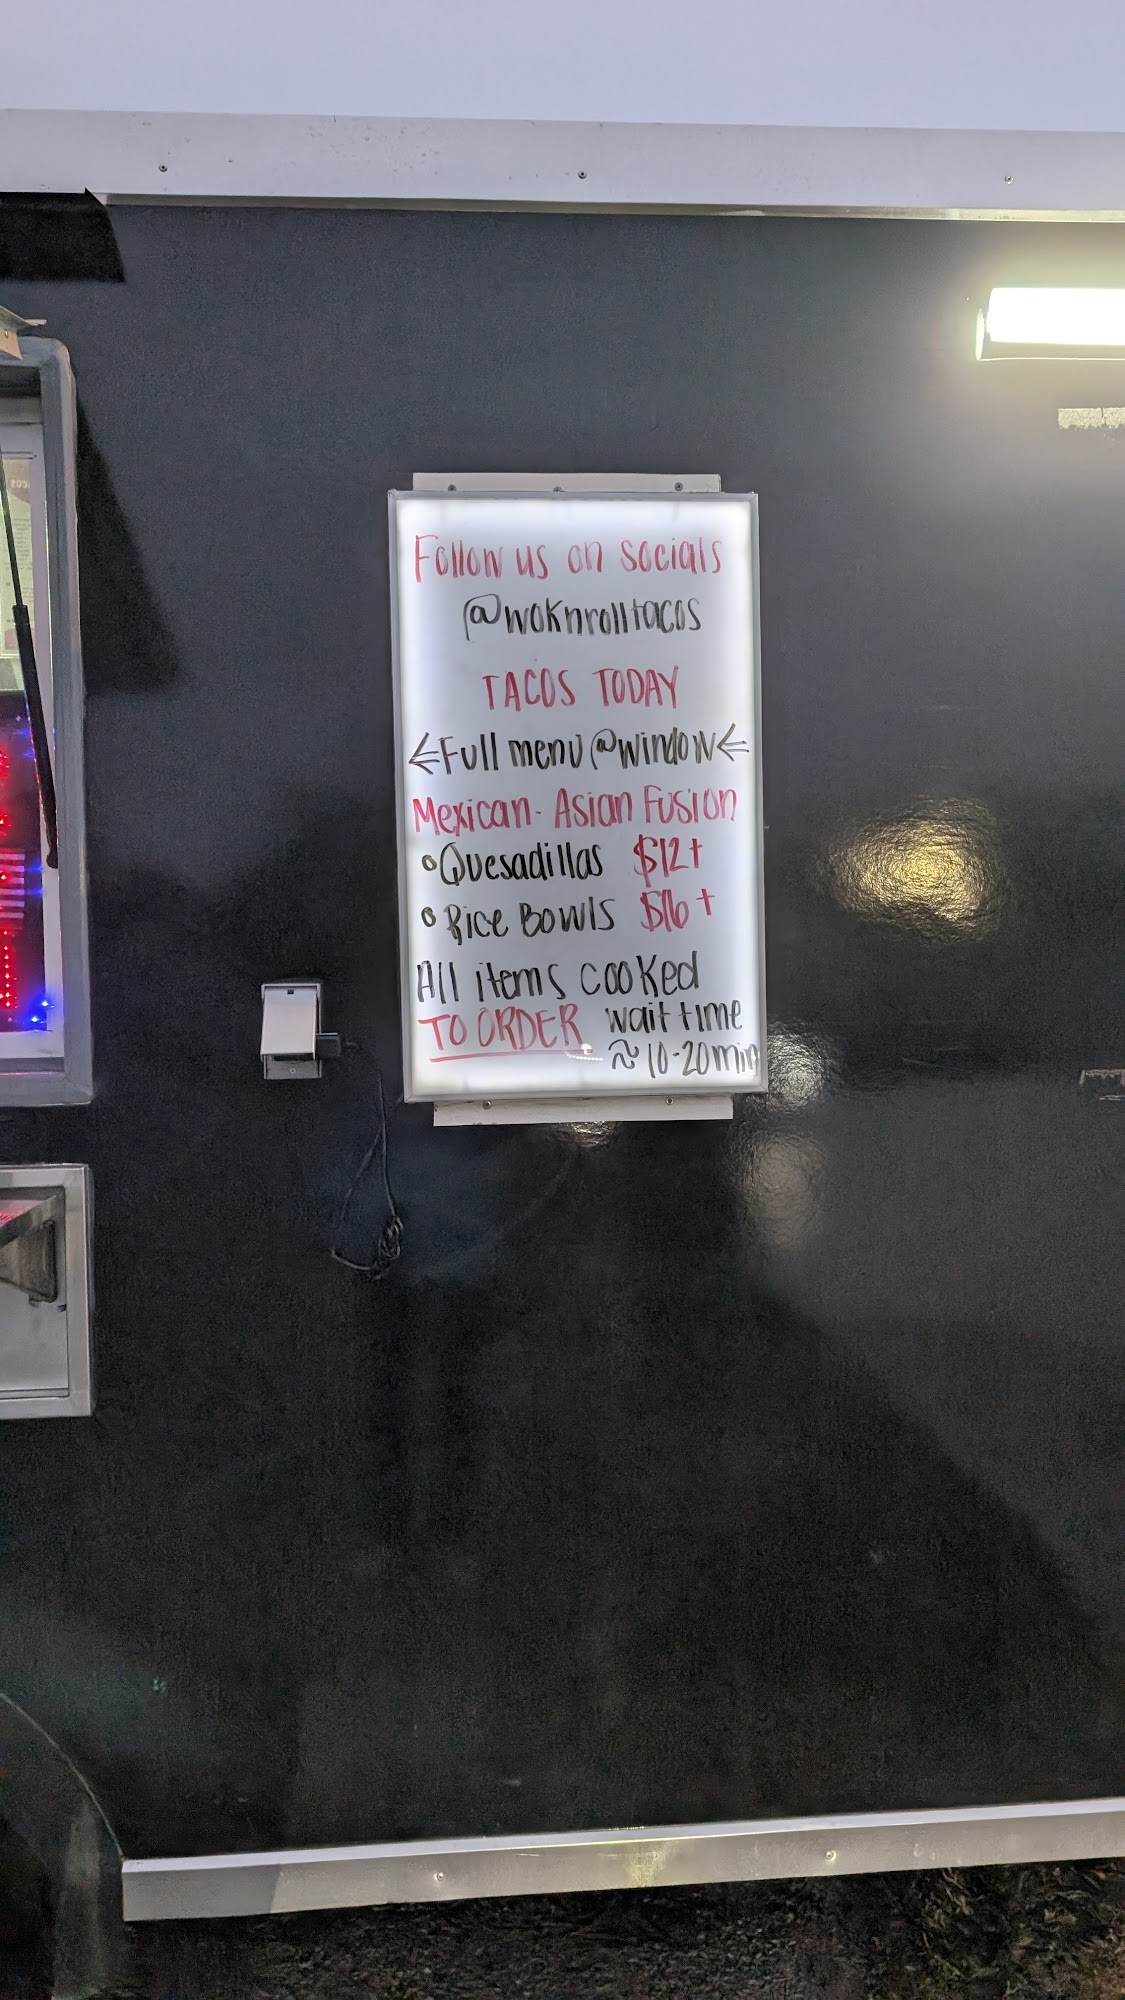 Follow us on socials
@woknrolltacos
TACOS TODAY
←Full menu @window←
Mexican-Asian Fusion
•Quesadillas $12+
•Rice Bowls $16+
All items cooked
TO ORDER wait time
≈10-20min